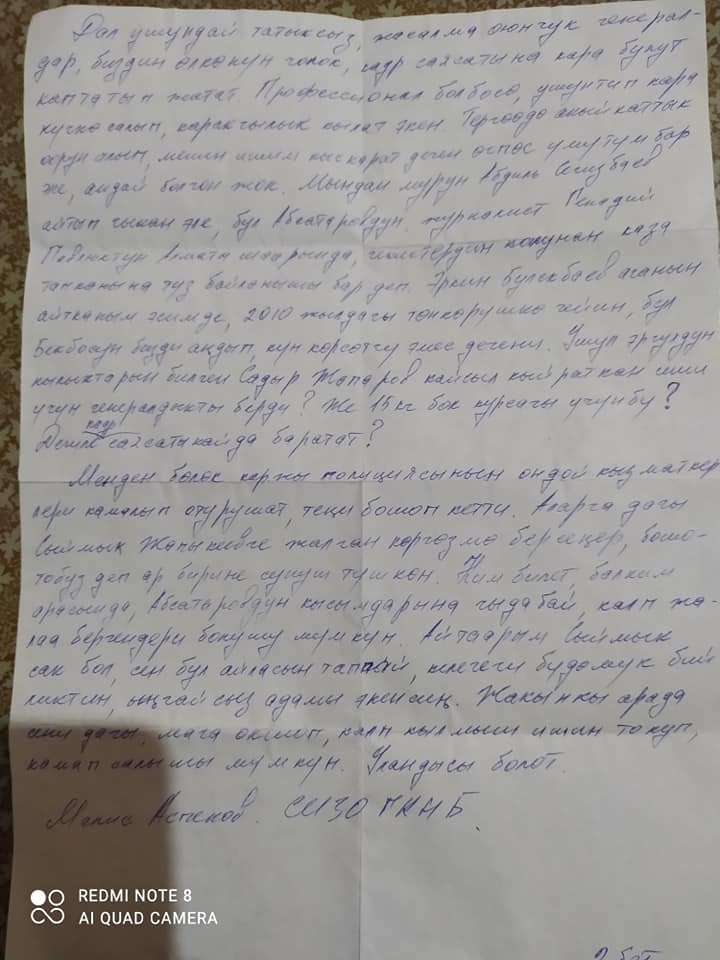 Дал ушундай татыксыз, жасалма оюнчук генерал-
дар, биздин өлкөнүн чолок, кадр саясатына кара булут
каптатып жатат. Профессионал болбосо, ушунтип кара
күчкө салып, каракчылык кылат экен. Тергөөдө акыйкаттык
орун алып, менин ишим кыскарат деген өспөс үмүтүм бар
же, андай болгон жок. Мындан мурун Абдиль Сегизбаев
айтып чыккан эле, бул Абсатаровдун журналист Генадий
Павлюктун Алмата шаарында, колунан каза
тапканына түз байланышы бар деп. Эркин Булекбаев аганын
айтканы эсимде, 2010 жылдагы төңкөрүшкө чейин, бул
Бекбосун бизди аңдып, күн көрсөтчү эмес дегени. Ушул эргулдун
кылыктарын билген Садыр Жапаров кайсыл кыйраткан иши
үчүн генералдыкты берди? Же 15 кг бок курсагы үчүнбү?
саясаты кайда баратат?
Менден бөлөк каржы полициясынын ондой кызматкер-
лери камалып отурушат, теңи бошоп кетти. Аларга дагы
Сыймык Жапыкеевге жалган көргөзмө берсеңер, бошо-
тобуз деп ар бирине сунуш түшкөн. Ким билет, балким
арасында, Абсатаровдун кысымдарына чыдабай, калп жа-
лаа бергендери болушу мүмкүн. Айтаарым Сыймык
сак бол, сен бул айласын таппай, келечеги будамук бий-
ликтин, ыңгайсыз адамы экенсиң. Жакынкы арада
сени дагы, мага окшоп, калп кылмыш ишин токуп,
камап салышы мүмкүн. Уландысы болот.
Мелис Аспеков. СИЗО ГКНБ.
2 бет
REDMI NOTE 8
AI QUAD CAMERA